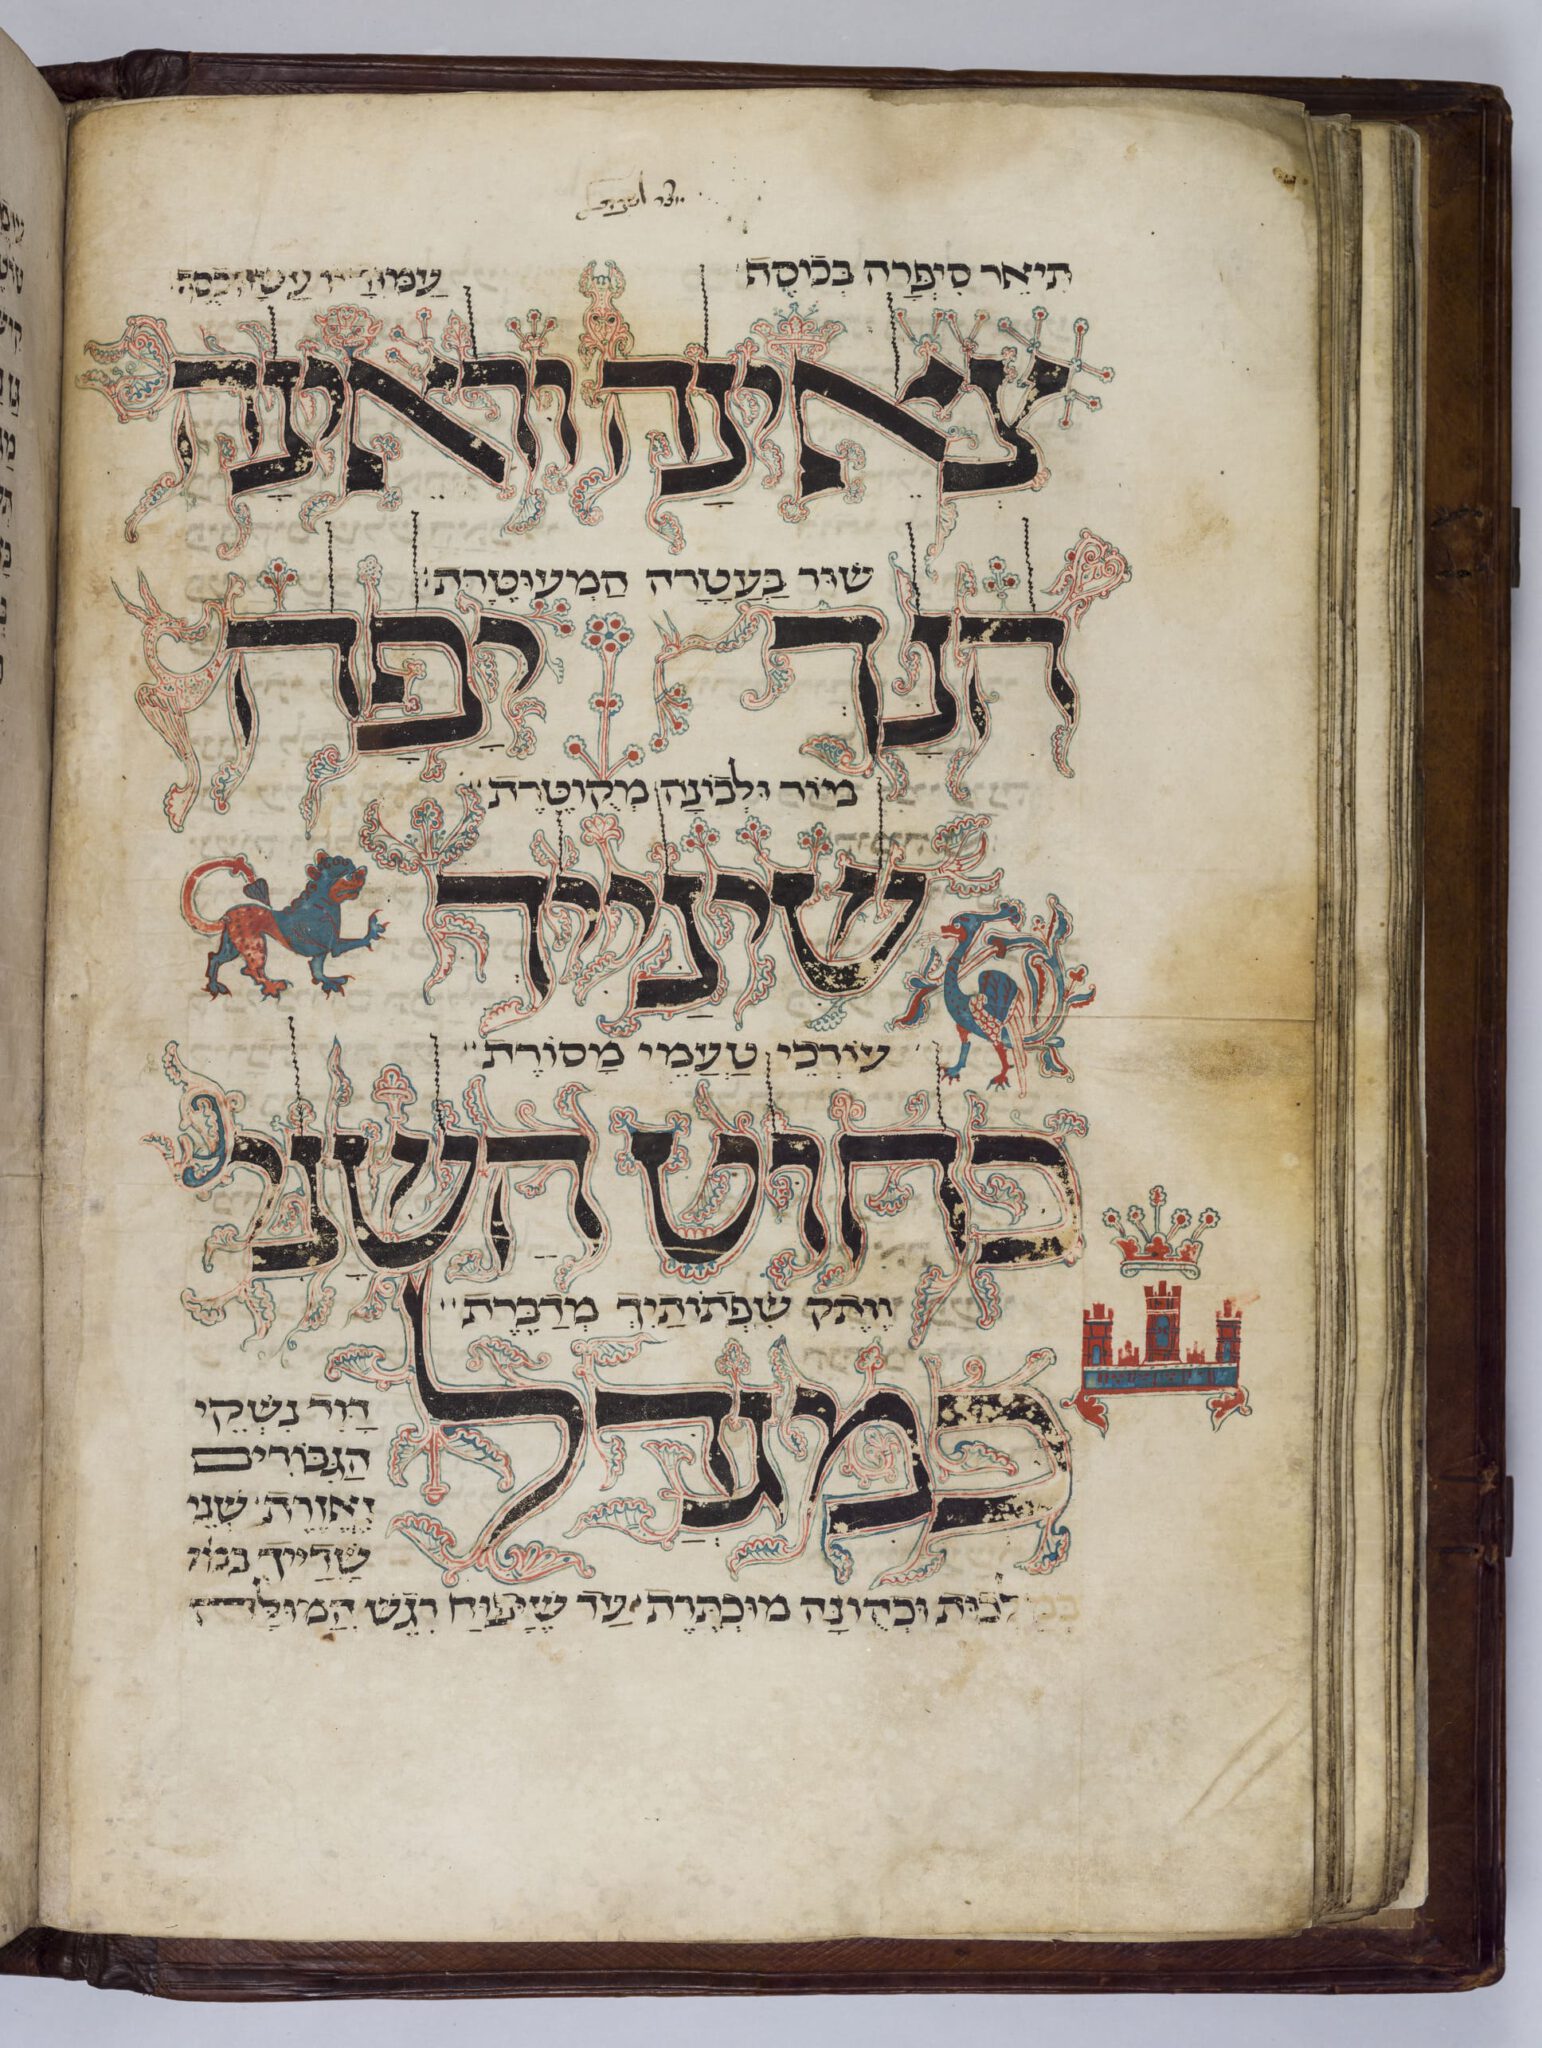 יוצר לשבת
תִיאֵר סִיפְּרָהּ בְּכוֹסָהּ עַמּוּדָיו עָשָׂה כֶסֶף
צְאֶינָה וּרְאֶינָה
שׁוּר בַּעֲטָרָה הַמְעוּטֶּרֶת
הִנָּךְ יָפָה
מִיוֹר וּלְבוֹנָה מְקוּטֶּרֶת
שִׁינַּיִיךְ
עוֹרְכֵי טַעֲמֵי מָסוֹרֶת
כְּחוּט הַשָּׁנִי
וָתֶק שִׂפְתוֹתַיִךְ מְדַבֶּרֶת
כְּמִגְדַּל
דָּוִד נִשְׁקֵי
הַגִּבּוֹרִים
נֶאֱזֶרֶת שְׁנֵי
שָׁדַיִיךְ כְּמוֹ
בְּמַלְכוּת וּכְהוּנָּה מוּכְתֶּרֶת עַד שֶׁיָּפוּחַ רֶגֶשׁ הֲמוּלָּתָן